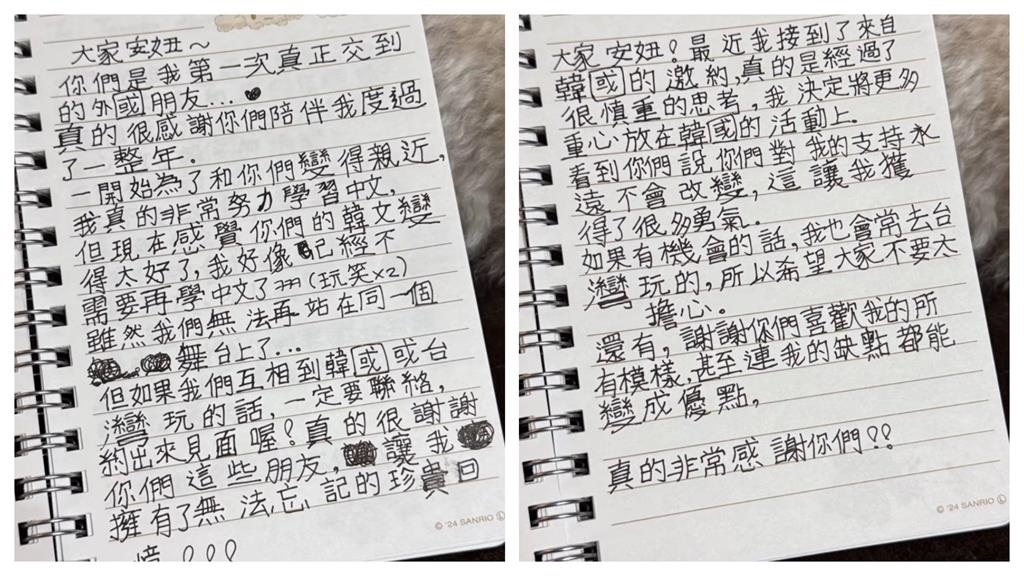 大家安妞～
你們是我第一次真正交到
的外國朋友...♥
真的很感謝你們陪伴我度過
了一整年.
一開始為了和你們變得親近,
我真的非常努力學習中文,
但現在感覺你們的韓文變
得太好了,我好像已經不
需要再學中文了ㅋㅋㅋ(玩笑x2)
雖然我們無法再站在同一個
舞台上了...
但如果我們互相到韓國或台
灣玩的話,一定要聯絡,
約出來見面喔!真的很謝謝
你們這些朋友,讓我
擁有了無法忘記的珍貴回
憶!!!
© '24 SANRIO Ⓛ
大家安妞!最近我接到了來自
韓國的邀約,真的是經過了
很慎重的思考,我決定將更多
重心放在韓國的活動上.
看到你們說你們對我的支持永
遠不會改變,這讓我獲
得了很多勇氣.
如果有機會的話,我也會常去台
灣玩的,所以希望大家不要太
擔心。
還有,謝謝你們喜歡我的所
有模樣,甚至連我的缺點都能
變成優點,
真的非常感謝你們!!
© '24 SANRIO Ⓛ